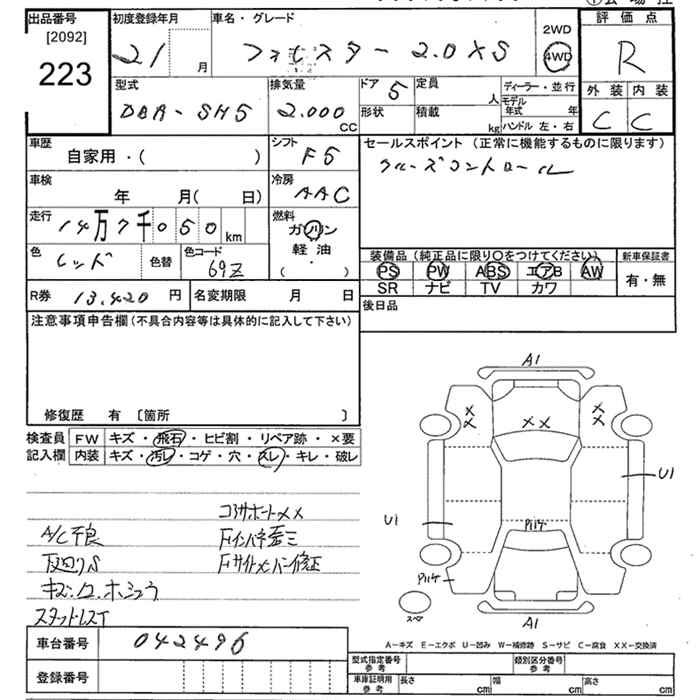 出品番号 [2092] 223
初度登録年月 21 月
車名・グレード フォレスター 2.0XS
2WD
4WD
評価点 R
外装 内装
C C
型式 DBA-SH5
排気量 2.000 CC
ドア 5
形状
定員 人
積載 kg
ディーラー・並行
モデル年式 年
ハンドル 左・右
車歴 自家用・( )
シフト F5
セールスポイント(正常に機能するものに限ります)
クルーズコントロール
車検 年 月( 日)
冷房 AAC
走行 14万7千050 km
燃料 ガソリン
軽油
・
( )
色 レッド
色替
色コード 69Z
装備品(純正品に限り〇をつけてください)
PS PW ABS エアB AW
SR ナビ TV カワ
新車保証書
有・無
R券 13.420 円
名変期限 月 日
後日品
注意事項申告欄(不具合内容等は具体的に記入して下さい)
修復歴 有 〔箇所 〕
検査員 FW キズ・飛石・ヒビ割・リペア跡・×要
記入欄 内装 キズ・汚レ・コゲ・穴・スレ・キレ・破レ
コアサポートXX
A/C不良 Fインパネ歪ミ
下廻りS Fサイドメンバー修正
キズ・
スタットレスT
A1
X X
X X
X X
U1
U1
Pハゲ
Pハゲ
スペア
A1
A-キズ E-エクボ U-凹み W-補修跡 S-サビ C-腐食 XX-交換済
車台番号 042496
登録番号
型式指定番号 参考
類別区分番号 参考
車庫証明用 参考 長さ cm 幅 cm 高さ cm